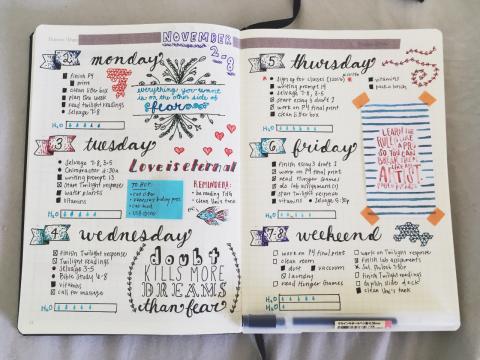 NOVEMBER
2-8
2 monday
finish P4
print
clean litter box
plan the week
read twilight readings
Selvage 7-8
H2O
everything you want
is on the other side of
fear
3 tuesday
Selvage 7-8, 3-5
Chiropractor
writing prompt 13
start Twilight response
water plants
vitamins
H2O
Love is eternal
TO BUY:
cat litter
cat food
USB drive
REMINDERS:
4 wednesday
finish Twilight response
Twilight readings
Selvage 3-5
Bible Study
vitamins
call for massage
H2O
doubt
KILLS MORE
DREAMS
than fear
5 thursday
sign up for classes
writing prompt 14
selvage, 3-5
start essay 3 draft 2
work on P4 final print
clean litter box
vitamins
H2O
6 friday
finish essay 3 draft 2
work on P4 final print
read Hunger Games
do lab assignment
start Twilight response
vitamins
H2O
LEARN THE
RULES LIKE
A PRO
SO YOU CAN
BREAK THEM
LIKE AN
ARTIST.
7-8 weekend
work on P4 final print
clean room
dust
vacuum
laundry
read Hunger Games
work on Twilight response
finish lab assignments
finish Twilight readings
explain slide deck
H2O
H2O